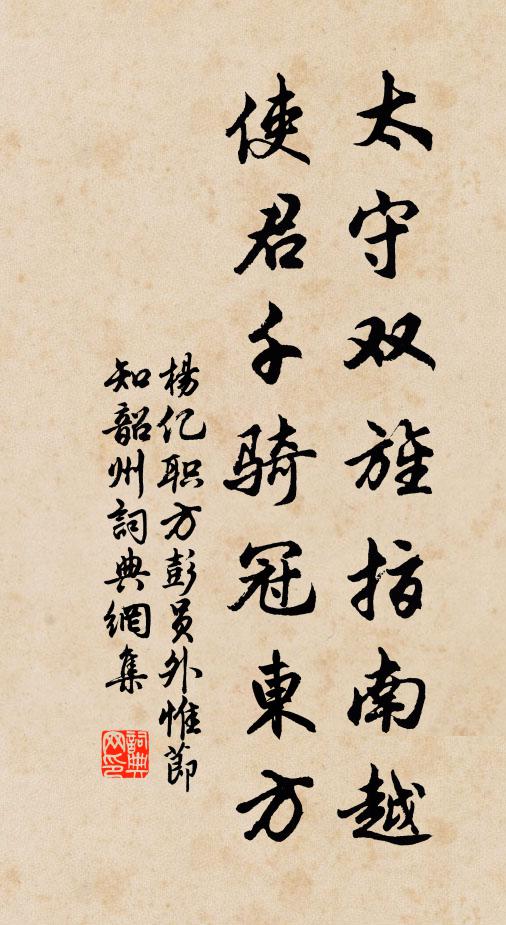 太守双旌指南越
使君千骑冠東方
楊亿职方彭员外惟節
知韶州詞典網集
詞典网印